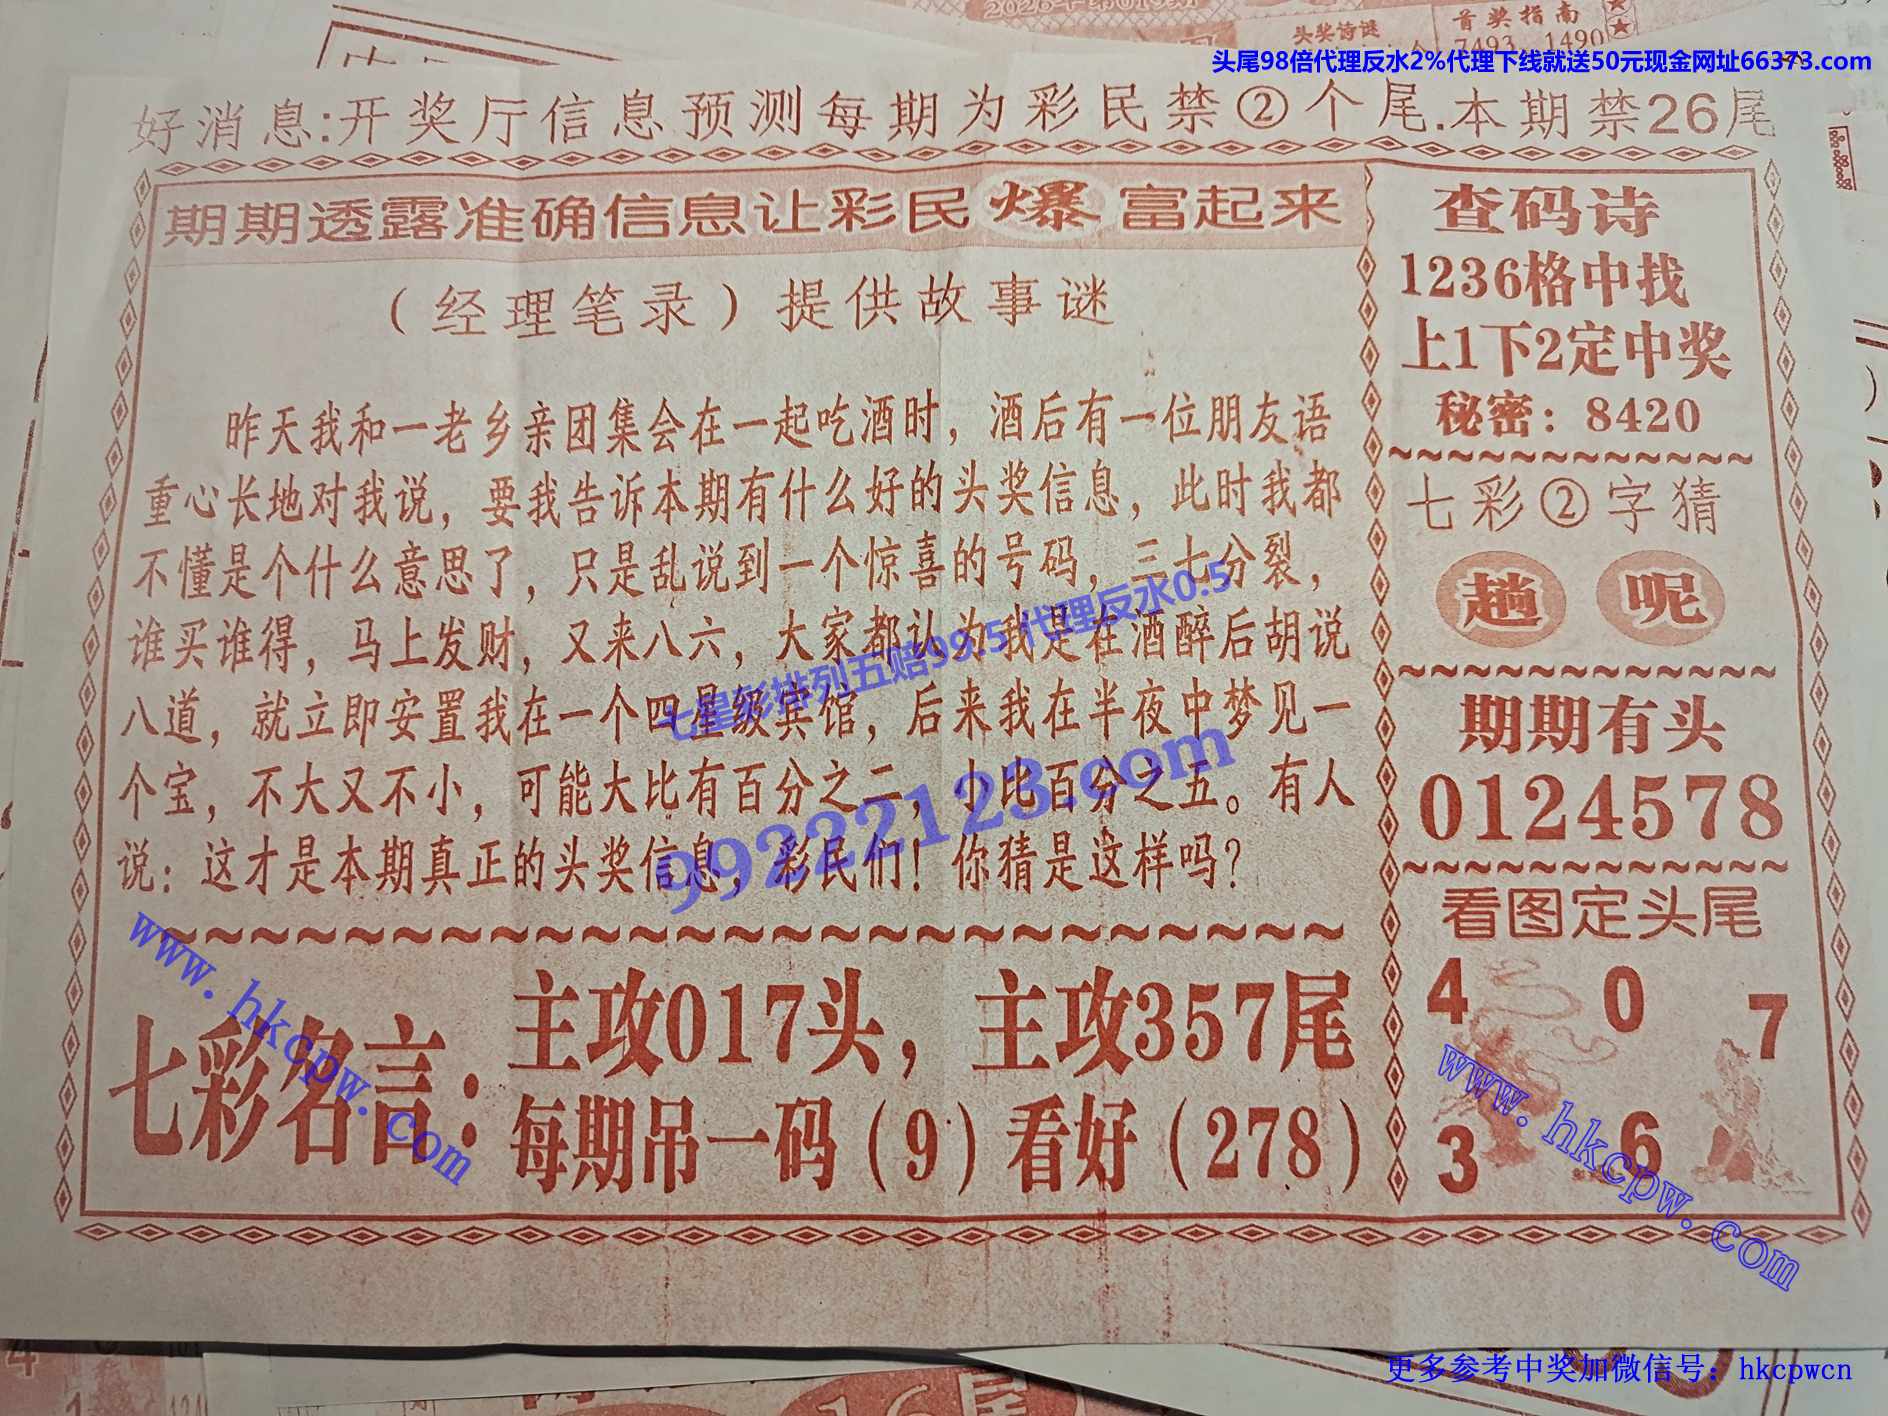 2026年第019期
头奖诗谜
首奖指南
7493、1490
头尾98倍代理反水2%代理下线就送50元现金网址66373.com
好消息:开奖厅信息预测每期为彩民禁②个尾.本期禁26尾
期期透露准确信息让彩民爆富起来
（经理笔录）提供故事谜
昨天我和一老乡亲团集会在一起吃酒时，酒后有一位朋友语
重心长地对我说，要我告诉本期有什么好的头奖信息，此时我都
不懂是个什么意思了，只是乱说到一个惊喜的号码，三七分裂，
谁买谁得，马上发财，又来八六，大家都认为我是在酒醉后胡说
八道，就立即安置我在一个四星级宾馆，后来我在半夜中梦见一
个宝，不大又不小，可能大比有百分之二，小比百分之五。有人
说：这才是本期真正的头奖信息，彩民们！你猜是这样吗？
七星彩排列五赔99.5代理反水0.5
9922123.com
七彩名言：
主攻017头，主攻357尾
每期吊一码（9）看好（278）
www.hkcpw.com
查码诗
1236格中找
上1下2定中奖
秘密：8420
七彩②字猜
趟 呢
期期有头
0124578
看图定头尾
4 0 7
3 6
www.hkcpw.com
更多参考中奖加微信号：hkcpwcn
16尾